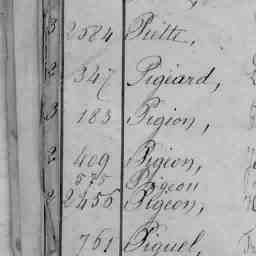 3 2584 Piette,
2 347 Pigiard,
3 183 Pigion,
2 409 Pigion,
575 Pigeon
2 2456 Pigeon,
751 Piguel,